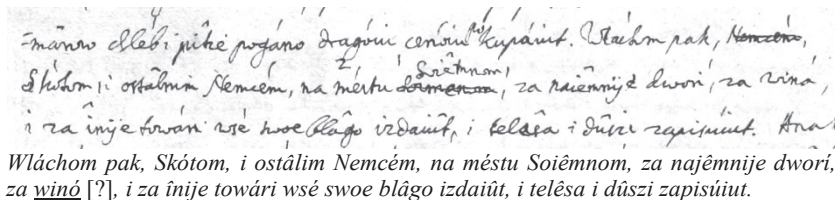 chlêb i pitie pogáno dragóiu cenóiu kupáiut. Wláchom pak, Nemcém,
Skótom, i ostâlnim Nemcém, na méstu Soiêmnom, za naiêmnije dwori, za vinó,
i za înije towári wsé swoe blâgo izdaiût, i telêsa i dûszi zapisúiut. A na
Wláchom pak, Skótom, i ostâlim Nemcém, na méstu Soiêmnom, za najêmnije dworí,
za winó [?], i za înije towári wsé swoe blâgo izdaiût, i telêsa i dûszi zapisúiut.